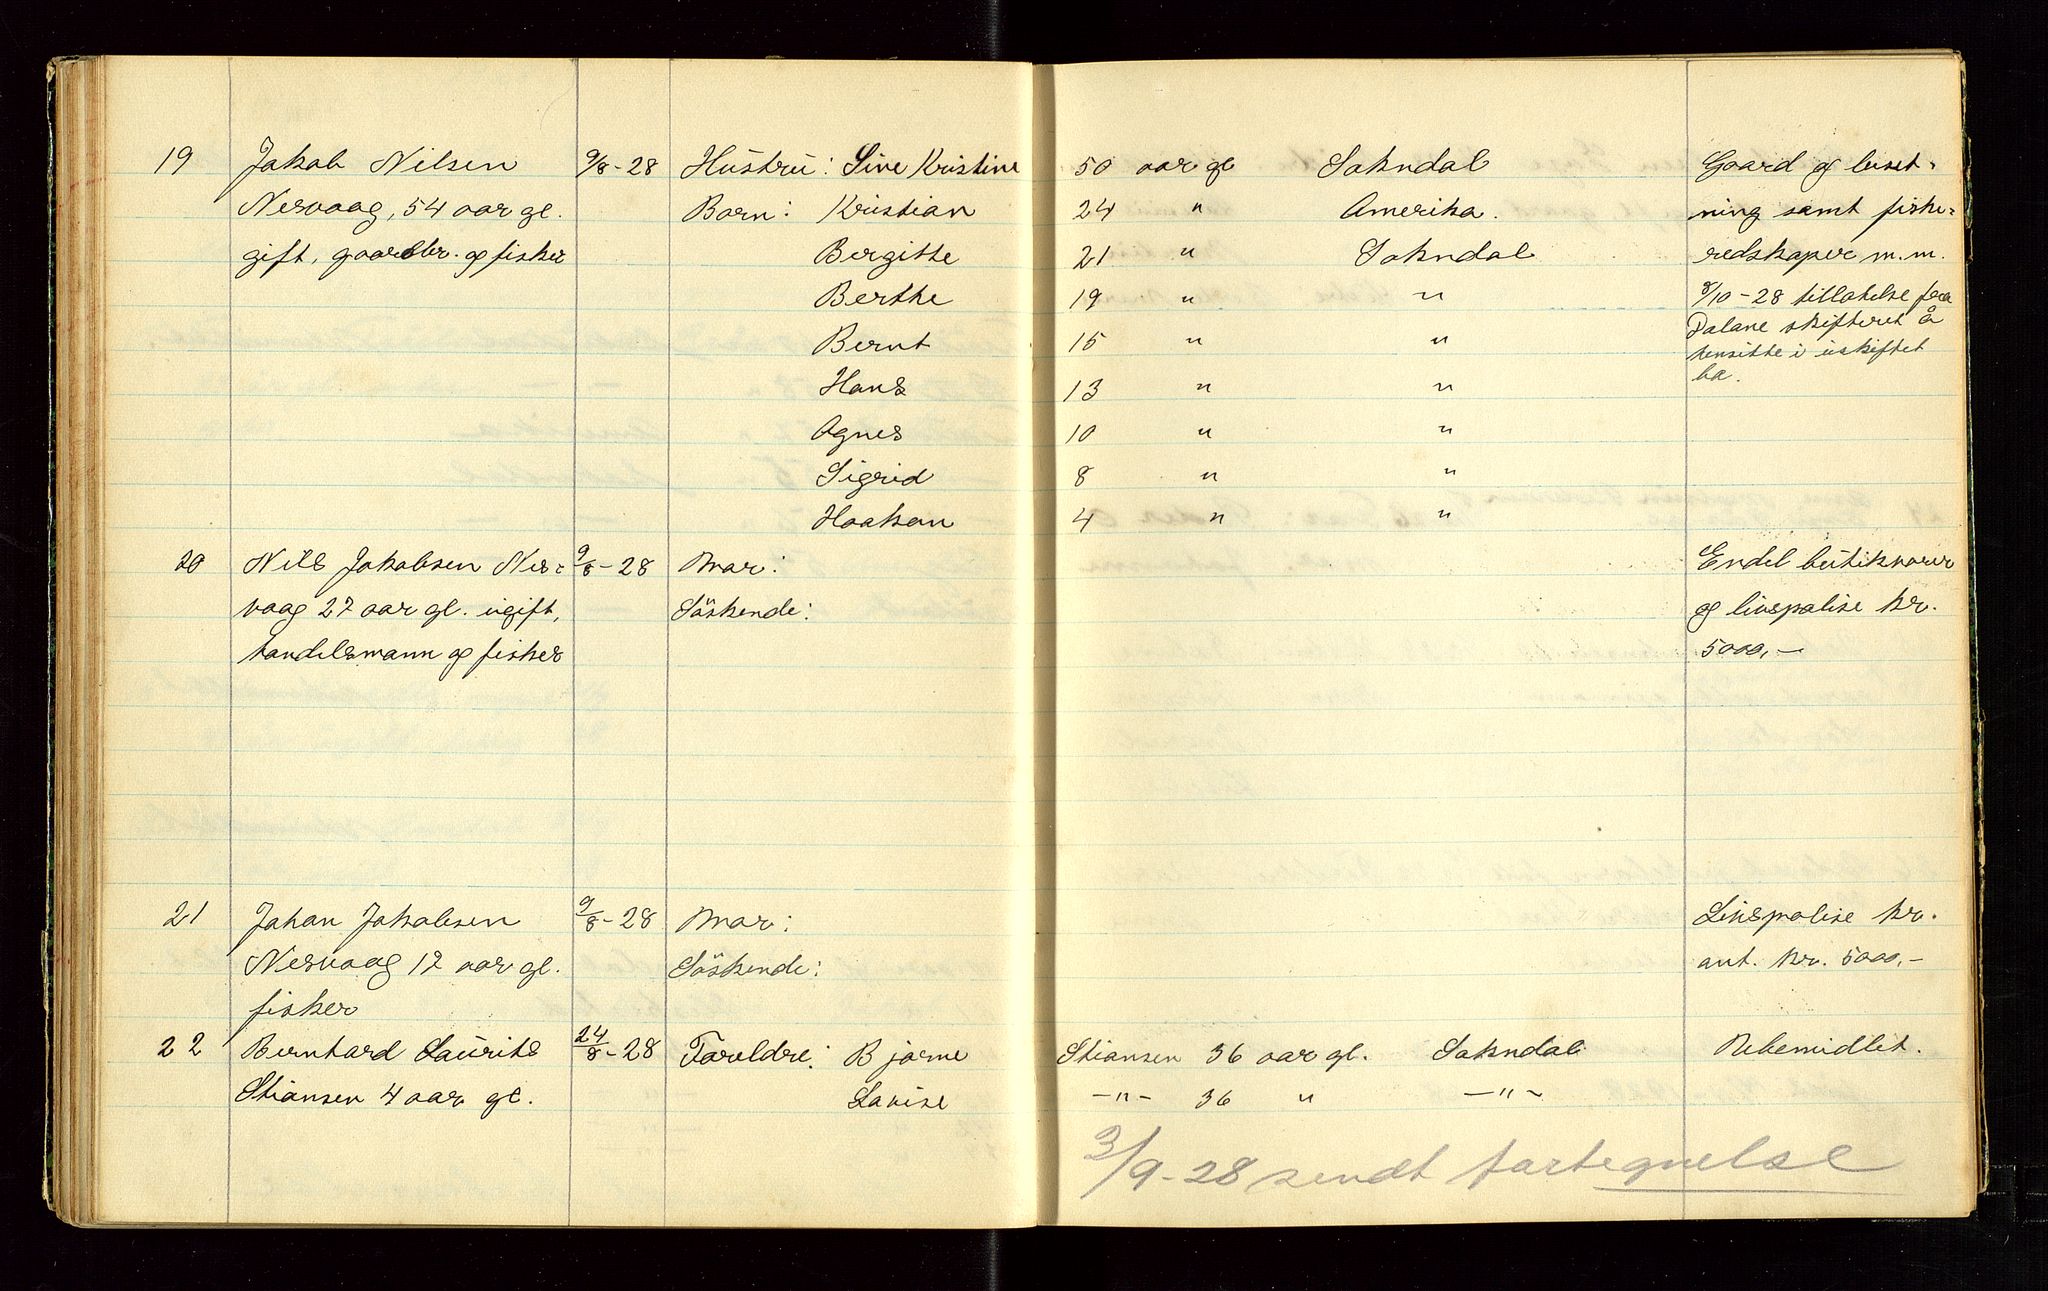 19 Jakob Nilsen 9/8-28 Hustru: Sine Kristine 50 aar gl Sokndal Gaard og buset-
Nesvaag, 54 aar gl. Barn: Kristian 24 " Amerika. ning samt fiske-
gift, gaardbr. og fisker Bergitte 21 " Sokndal redskaper m.m.
Berthe 19 " " 8/10-28 tillatelse fra
Dalane skifteret å
Bernt 15 " "
hensitte i uskiftet
Hans 13 " " bo.
Agnes 10 " "
Sigrid 8 " "
Haakon 4 " "
20 Nils Jakobsen Nes- 9/8-28 Mor: Endel butikvarer
vaag 27 aar gl. ugift, Söskende: og livspolise kr.
handelsmann og fisker 5000,-
21 Johan Jakobsen 9/8-28 Mor: Livspolise kr.
Nesvaag 17 aar gl. Söskende: ant. kr. 5000,-
fisker
22 Bernhard Laurits 24/8-28 Foreldre: Bjarne Stiansen 36 aar gl. Sokndal Ubemidlet.
Stiansen 4 aar gl. Lovise -"- 36 " -"-
3/9-28 sendt fortegnelse